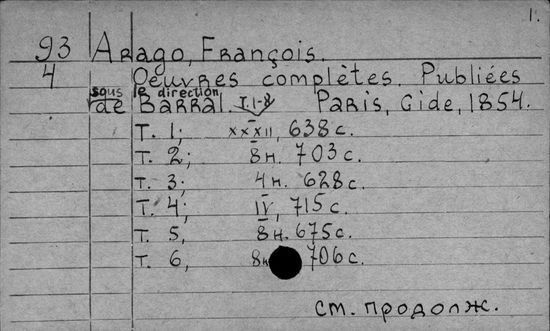 1.
93 Arago, François.
4 Oeuvres complètes. Publiées
sous le direction
de Barral. T. 1-8 Paris, Gide, 1854.
T. 1; XXXII, 638 с.
T. 2; 8 н. 703 с.
T. 3; 4 н. 628 с.
T. 4; IV, 715 с.
T. 5, 8 н. 675 с.
T. 6, 8 н 706 с.
см. продолж.